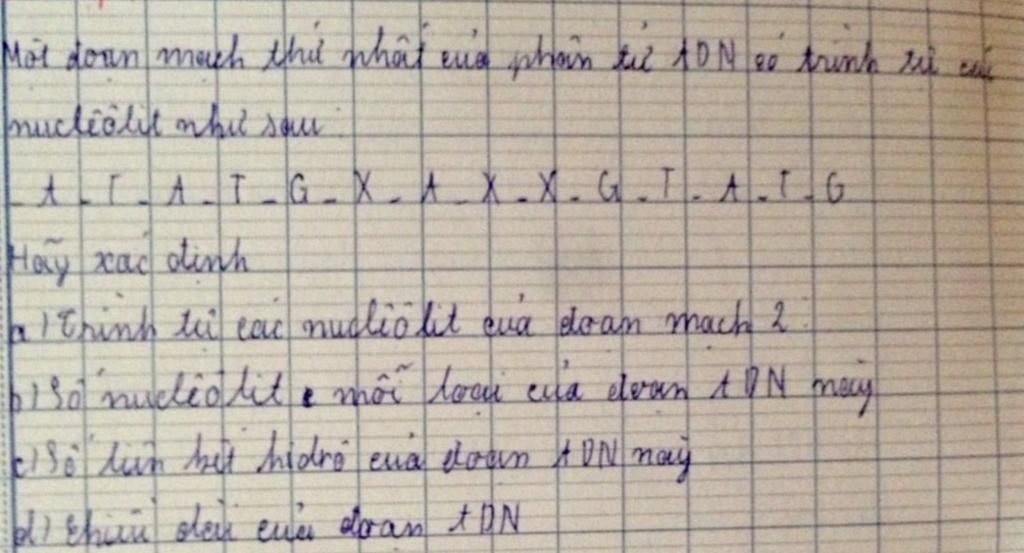 Một đoạn mạch thứ nhất của phân tử ADN có trình tự các
nuclêôtit như sau:
_ A _ T _ A _ T _ G _ X _ A _ X _ X _ G _ T _ A _ T _ G
Hãy xác định
a) Trình tự các nuclêôtit của đoạn mạch 2.
b) Số nuclêôtit mỗi loại của đoạn ADN này
c) Số liên kết hiđrô của đoạn ADN này
d) Chiều dài của đoạn ADN